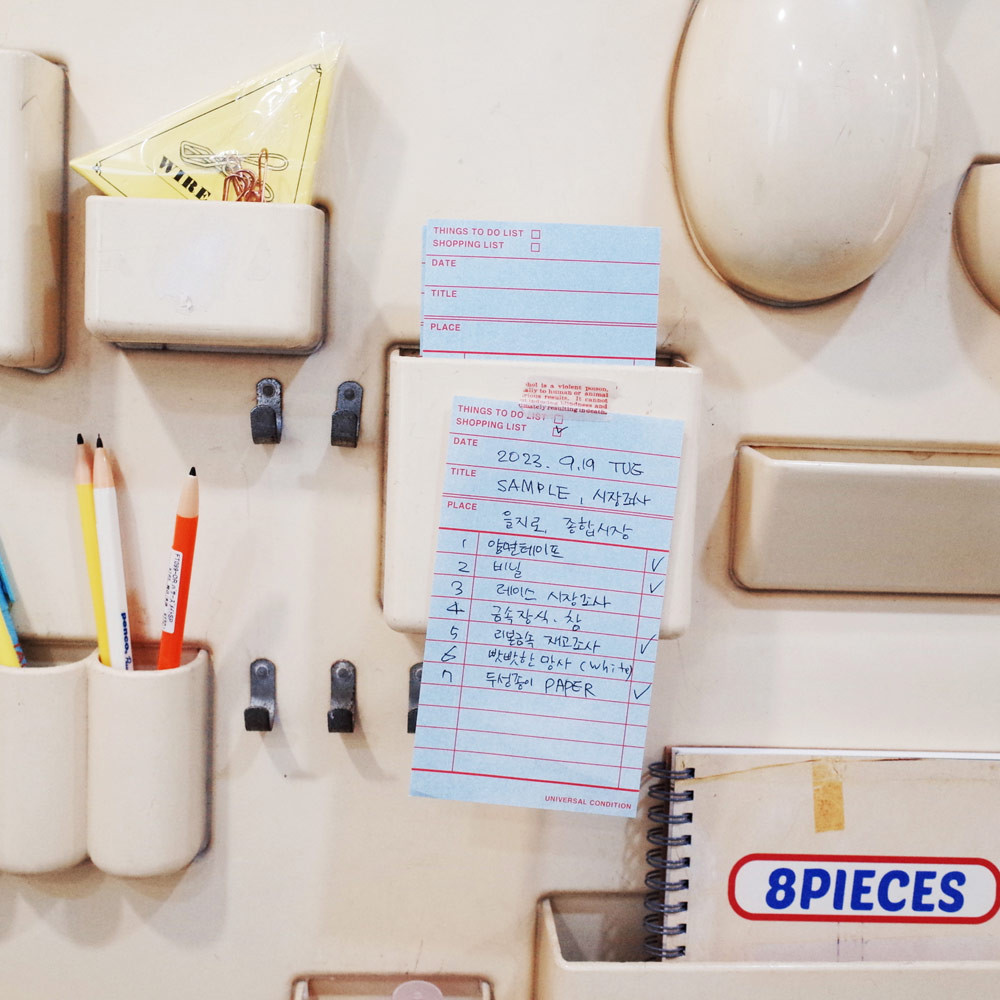 WIRE
THINGS TO DO LIST
SHOPPING LIST
DATE
TITLE
PLACE
hol is a violent poison,
ally to human or animal
rious results. It cannot
inducing blindness and
timately resulting in death.
THINGS TO DO LIST
SHOPPING LIST
DATE 2023. 9.19 TUE
TITLE SAMPLE, 시장조사
PLACE 을지로, 종합시장
1 양면테이프
2 비닐
3 레이스 시장조사
4 금속장식. 참
5 리본금속 재고조사
6 빳빳한 망사 (white)
7 두성종이 PAPER
UNIVERSAL CONDITION
penco
8PIECES